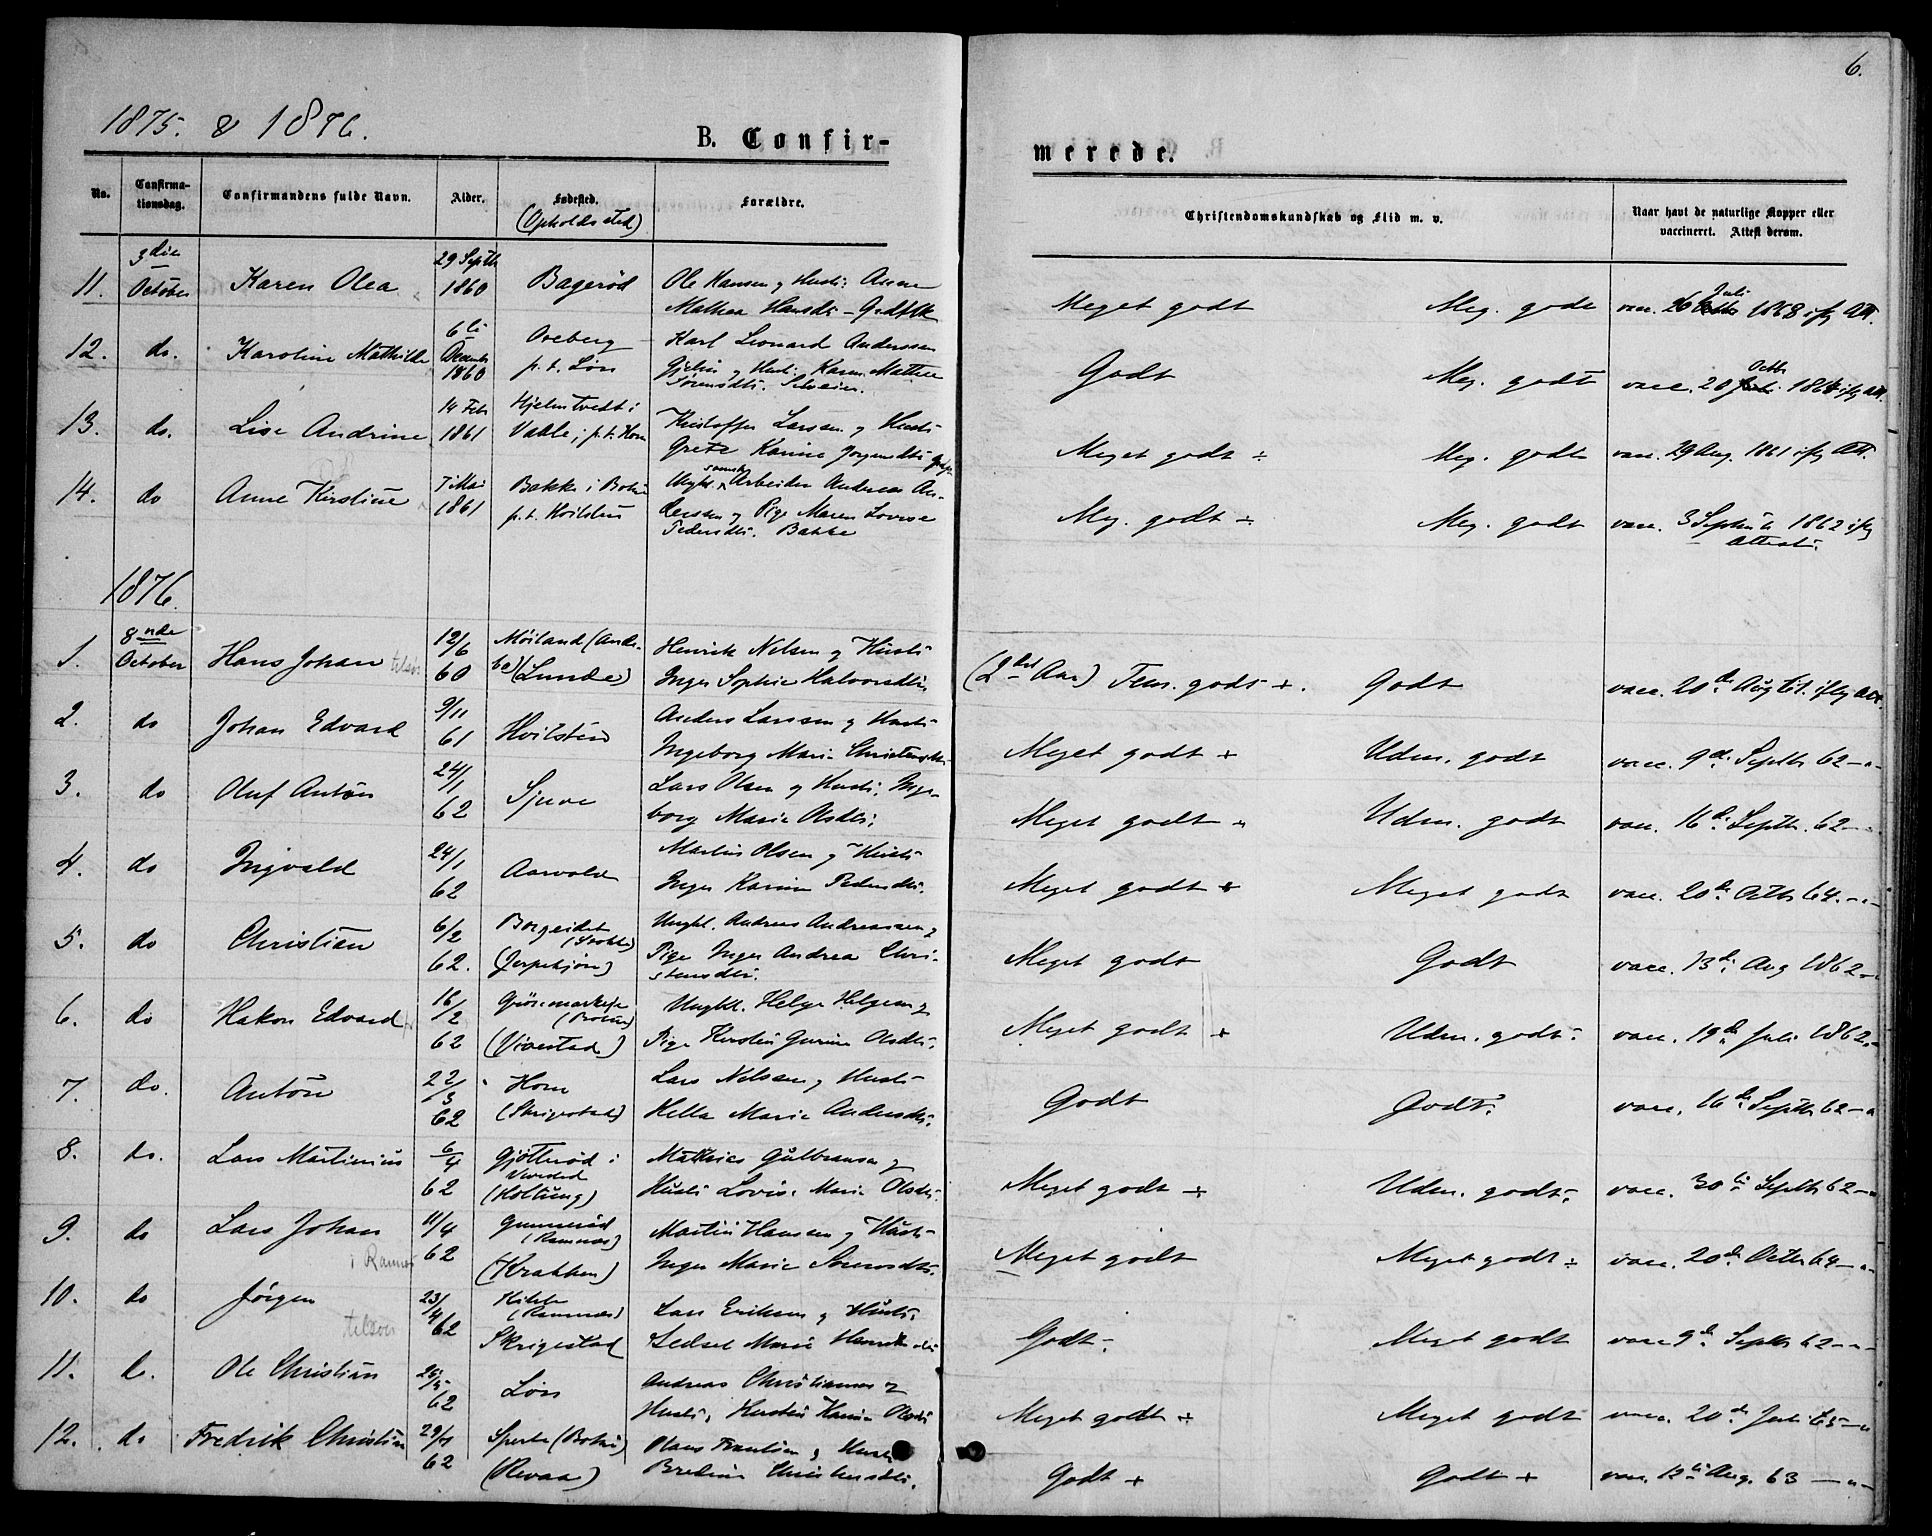 6.
1875. & 1876.
B. Confir-
merede.
No.
Confirma-
tionsdag.
Confirmandens fulde Navn.
Alder.
Fødested.
(Opholdssted)
Forældre.
Christendomskundskab og Flid m. v.
Naar havt de naturlige Kopper eller
vaccineret. Attest derom.
3die 29 Septb
11. October Karen Olea 1860 Bagerød Ole Hansen og Hustr: Anne
Mathea Hansdtr
Meget godt Meg. godt vacc. 26 Juli 1868 iflg Att.
6te
12. do. Karoline Mathilde December Oreberg Karl Leonard Anderssen
1860 p.t. Løis og Hustr: Karen Mathea
Sørensdtr.
Godt Meg. godt vacc. 20 Octb 1868 iflg Att.
14 Feb Hjelmtvedt i
13. do. Lise Andrine 1861 Vaale, p.t. Horn Kristoffer Larsen og Hustr
Grete Karine Jørgensdtr
Meget godt ÷ Meg. godt vacc. 29 Aug. 1861 iflg Att.
14. do Anne Kirstine 7 Mai Bakke i Botne Ungk. svensk Arbeider Andreas An-
1861 p.t. Hvilsten derssen og Pige Maren Lovise
Pedersdtr. Bakke
Meg. godt ÷ Meg. godt vacc. 3 Septemb 1862 iflg
Attest.
1876.
8nde
1. October Hans Johan 12/6 Møiland (Ande-
60 bo) (Lunde)
Henrik Nelsen og Hustr
Inger Sophie Halvorsdtr
(2det Aar) Tem. godt +. Godt vacc. 20de Aug 61. iflg Att.
2. do Johan Edvard 9/11 61 Hvilsten Anders Larssen og Hustr
Ingeborg Marie Christensdtr
Meget godt + Udm. godt vacc. 9de Septb 62 — " —
3. do Oluf Anton 24/1 62 Sjuve Lars Olsen og Hustr. Inge-
borg Marie Olsdtr.
Meget godt ÷ Udm. godt vacc. 16de Septb. 62 — " —
4. do Ingvald 24/1 62 Aarvold Martin Olsen og Hustr
Inger Karine Pedersdtr.
Meget godt + Meget godt vacc. 20de Octb 64. — " —
5. do Christian 6/2 62. Borgeidet
Ungk. Andreas Andreassen og
Pige Inger Andrea Chri-
stensdtr.
Meget godt Godt vacc. 13de Aug 1862 — "
6. do Hakon Edvard 16/2 62
(Botne)
(Vivestad)
Ungkl. Helge Helgesen og
Pige Kirstin Gurine Olsdtr.
Meget godt + Udm. godt ÷ vacc. 19de Juli 1862 —
7. do. Anton 22/3 62 Horn
(Skrigestad)
Lars Nelsen og Hustr
Helle Marie Andersdtr.
Godt Godt ÷ vacc. 16de Septb 62 — "
8. do. Lars Martinius 6/4 62 Gjøtterød i
Vivestad
(Holtung)
Mathias Gulbransen og
Hustr Lovise Marie Olsdtr.
Meget godt + Udm. godt ÷ vacc. 30te Septb 62 — "
9. do Lars Johan 11/4 62 Gunnerød
i Ramnes
(Ramnæs)
(Krakken)
Martin Hansen og Hustr
Inger Marie Sørensdtr.
Meget godt Meget godt ÷ vacc. 20de Octbr 64 — " —
10. do Jørgen 23/4 62
(Ramnæs)
Skrigestad
Lars Eriksen og Hustr.
Marie Henriksdtr
Godt ÷ Meget godt vacc 9de Septb 62 — " —
11. do. Ole Christian 26/5 62 Løis Andreas Christiansen og
Hustr. Kirstin Karine Olsdtr
Meget godt + Meget godt vacc. 20de Juli 65 — "
12. do Fredrik Christian
62 (Botne)
(Revaa)
Hustr
Bredine Christensdtr.
Godt + Godt + vacc. 12te Aug. 63 — " —